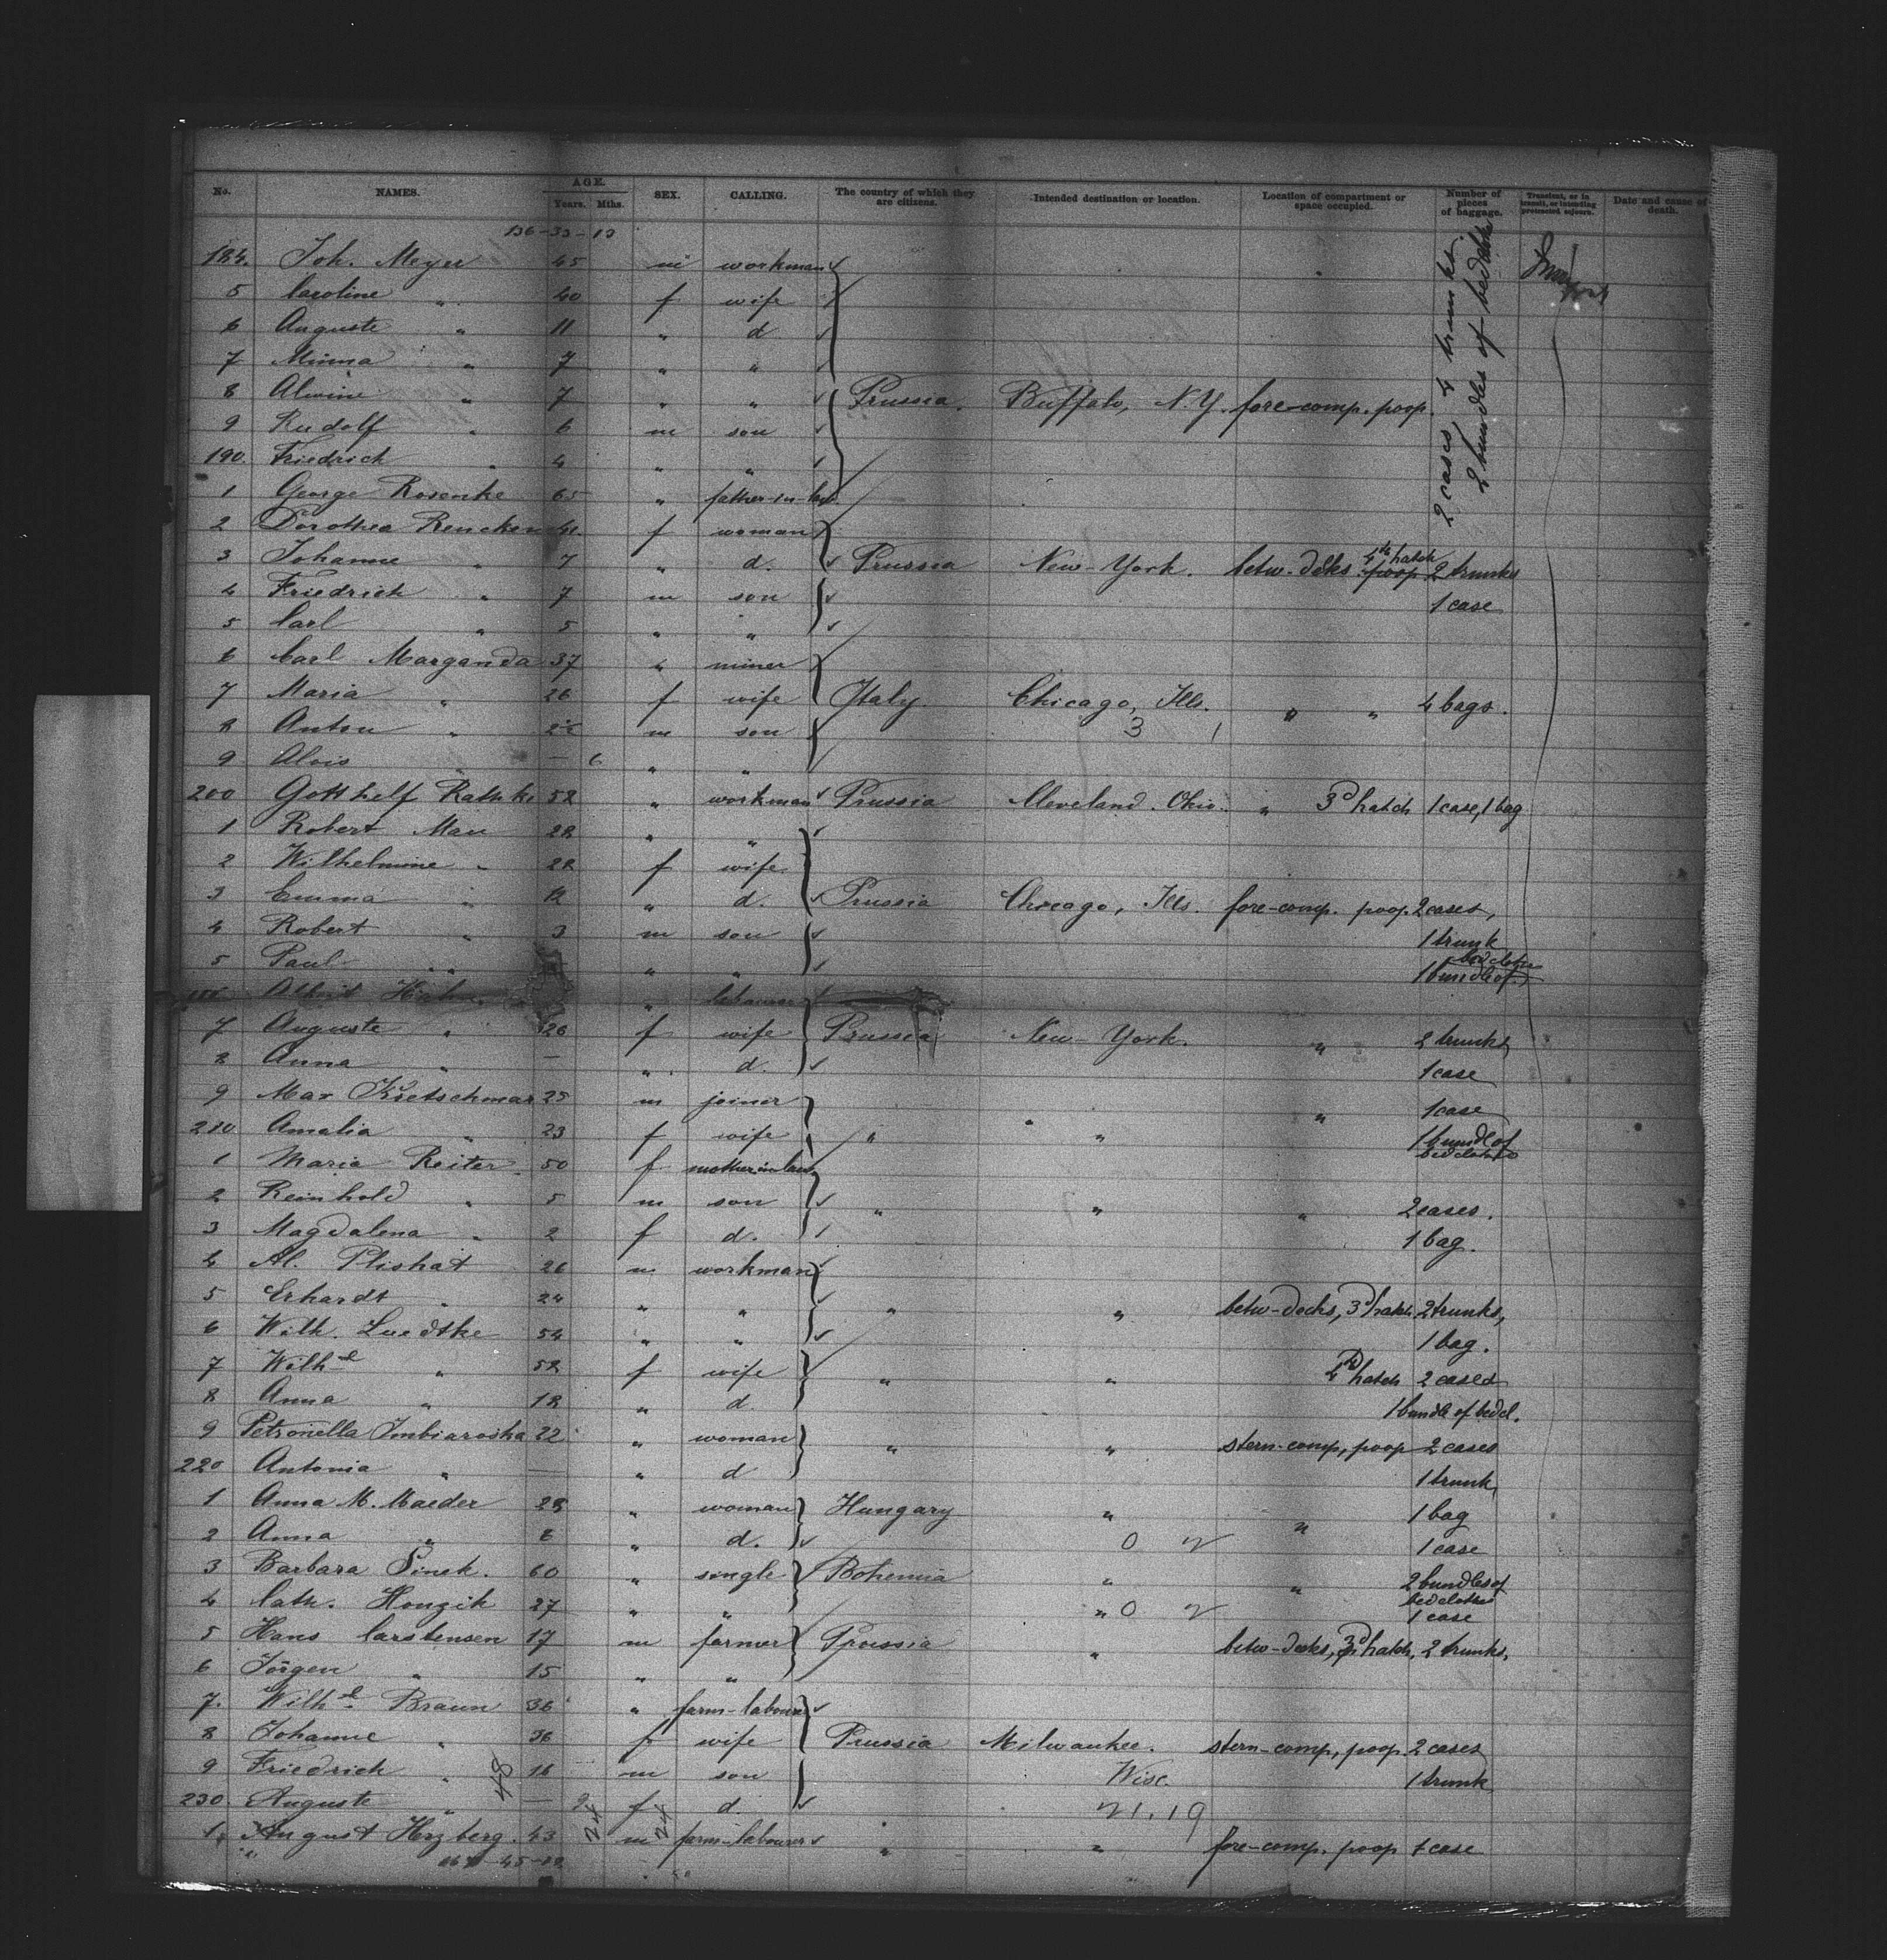 No. NAMES. AGE. Years. Mths. SEX. CALLING. The country of which they are citizens. Intended destination or location. Location of compartment or space occupied. Number of pieces of baggage. Transient, or in transit, or intending protracted sojourn. Date and cause of death.
184. Joh. Meyer 45 m workman 2 cases, 4 trunks,
5 Caroline " 40 f wife 2 bundles of bedcloth
6 Auguste " 11 " d.
7 Minna " 7 " "
8 Alwine " 7 " " Prussia. Buffalo, N.Y. fore-comp. poop.
9 Rudolf " 6 m son
190. Friedrich " 4 " "
1 George Rosenke 65 " father-in-law
2 Dorothea Rencken 41. f woman
3 Johanne " 7 " d. Prussia New-York. betw-deks 4th hatch poop 2 trunks
4 Friedrich " 7 m son 1 case
5 Carl " 5 " "
6 Carl Marganda 37 " miner
7 Maria " 26 f wife Italy Chicago, Ills. " " 4 bags.
8 Anton " m son 3 1
9 Alois " — 6 " "
200 Gotthelf Rathke 58 " workman Prussia Cleveland. Ohio. " 3d hatch 1 case, 1 bag
1 Robert Mau 28 " "
2 Wilhelmine " 28 f wife
3 Emma " " d. Prussia Chicago, Ills. fore-comp. poop. 2 cases,
4 Robert " 3 m son 1 trunk
5 Paul " " " 1 bundle of bedclothes
Albert Hahn " labourer
7 Auguste " 26 f wife Prussia New-York. " 2 trunks
8 Anna " — " d. 1 case
9 Max Kretschmar 25 m joiner " 1 case
210 Amalia " 23 f wife " " 1 bundle of bedclothes
1 Maria Reiter 50 f mother in law
2 Reinhold " 5 m son " " " 2 cases.
3 Magdalena " 2 f d. 1 bag.
4 Al. Plishat 26 m workman
5 Erhardt " 24 " " " " betw-decks, 3d hatch 2 trunks,
6 Wilh. Luedtke 54 " " 1 bag.
7 Wilh " 58 f wife " " 4 hatch 2 cases
8 Anna " 18 " d 1 bundle of bedcl.
9 Petronella Imbiaroska 22 " woman " " stern-comp, poop 2 cases
220 Antonia " — " d 1 trunk
1 Anna M. Maeder 28 " woman Hungary " " 1 bag
2 Anna " 6 " d. 0 2 1 case
3 Barbara Sinek. 60 " single Bohemia " " 2 bundles of bedclothes
4 Cath. Houzik 27 " " " 0 2 1 case
5 Hans Carstensen 17 m farmer Prussia " betw-decks, 3d hatch, 2 trunks,
6 Jörgen " 15 " "
7. Wilh Braun 36 " farm-labourer
8 Johanne " 36 f wife Prussia Milwaukee. stern-comp, poop 2 cases
9 Friedrich " 16 m son Wisc. 1 trunk
230. Auguste " — 9 f d. 21.19
1. August Herzberg. 43 m farm-labourer " " fore-comp. poop 1 case
48 24 24